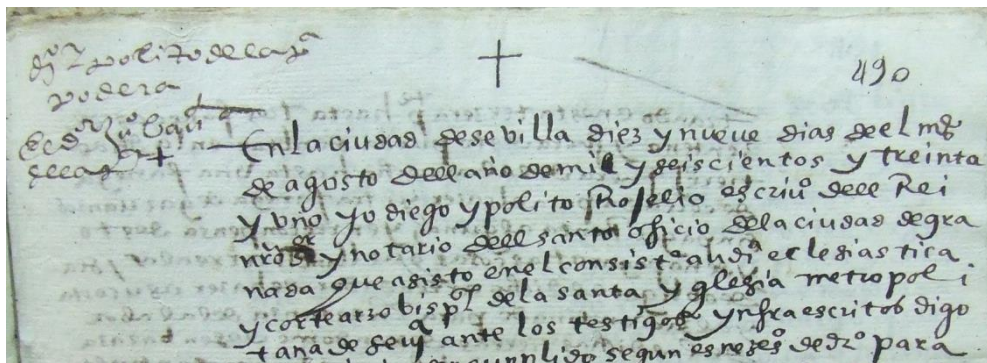 ypolito de la
podera
490
En la ciudad de sevilla diez y nueve dias de el mes
de agosto dell año de mil y seiscientos y treinta
y uno yo diego ypolito Roselio escriuº dell Rei
nrõ sʳ y notario dell santo oficio de la ciudad de gra
nada que asisto en el consistº audiª eclesiastica
y corte arzobispˡ de la santa yglesia metropoli
tana de seuª ante los testigos ynfraescritos digo
segun es neses° de drº para